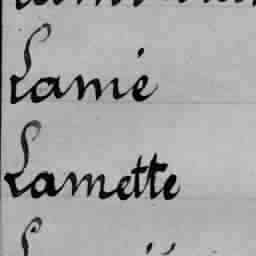 Lamé
Lamette